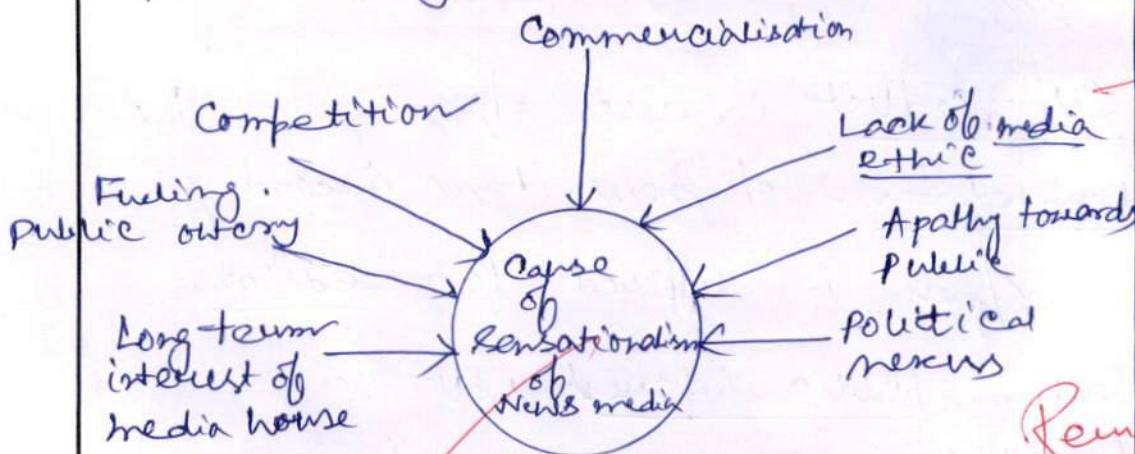 Commercialisation
Competition
Lack of media
ethic
Fueling
public outcry
Apathy towards
public
Cause
of
sensationalism
of
News media
Long-term
interest of
media house
Political
nexus